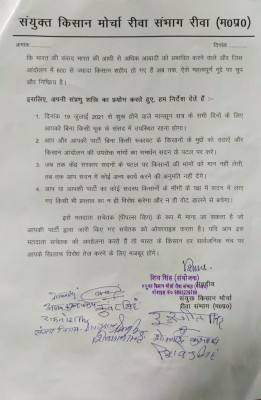 संयुक्त किसान मोर्चा रीवा संभाग रीवा (म०प्र०)
क्रमांक
दिनांक
कि भारत की संसद भारत की आधी से अधिक आबादी को प्रभावित करने वाले और जिस
आन्दोलन में 600 से ज्यादा किसान शहीद हो गए हैं अब तक, ऐसे महत्वपूर्ण मुद्दे पर चुप
और निष्क्रिय है।
इसलिए, अपनी संप्रभु शक्ति का प्रयोग करते हुए, हम निर्देश देते हैं :-
1. दिनांक 19 जुलाई 2021 से शुरू होने वाले मानसून सत्र के सभी दिनों के लिए
आपको बिना किसी चूक के संसद में उपस्थित रहना होगा।
2. आप और आपकी पार्टी बिना किसी रुकावट के किसानों के मुद्दे को उठाएँ और
किसान आन्दोलन की उपरोक्त मांगों का समर्थन सदन के पटल पर करें।
3. जब तक केंद्र सरकार सदन के पटल पर किसानों की मांगों को मान नहीं लेती,
तब तक आप सदन में कोई अन्य कार्य करने की अनुमति नहीं देंगे।
4. आप या आपकी पार्टी का कोई सदस्य किसानों के माँगों के पक्ष में सदन में लाए
गए किसी भी प्रस्ताव का न ही विरोध करेगा और न ही वोट डालने से बचेगा।
इसे मतदाता सचेतक (पीपल्स व्हिप) के रूप में माना जा सकता है जो
आपकी पार्टी द्वारा जारी किए गए सचेतक को ओवरराइड करता है। यदि आप इस
मतदाता सचेतक की अवहेलना करते हैं तो भारत के किसान हर सार्वजनिक मंच पर
आपके खिलाफ विरोध तेज करने के लिए मजबूर होंगे।
शिव सिंह (संयोजक)
संयुक्त किसान मोर्चा रीवा संभाग (म.प्र.)
भवदीय
संयुक्त किसान मोर्चा
रीवा संभाग रीवा (म०प्र०)